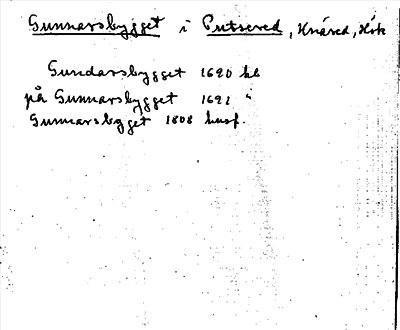 Gunnarsbygget i Putsered, Knäred, Hök
Gundarsbygget 1690 kl
på Gunnarsbygget 1691 "
Gunnarsbygget 1808 husf.